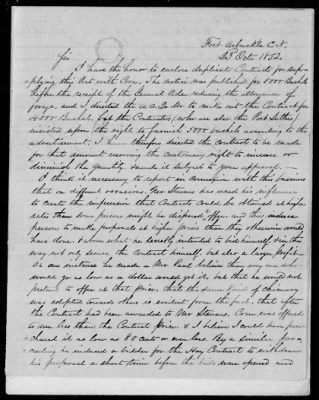 Fort Arbuckle C.N.
23d Octr 1852.
Sir
I have the honor to enclose duplicate Contracts for sup-
plying this Post with Corn. The notice was published for 8000 Bushels
before the receipt of the General Order reducing the allowance of
forage, and I directed the A.A.Q.M. to make out the Contract for
4000 Bushels, but the Contractors, (who are also the Post Sutlers)
insisted upon the right to furnish 8000 bushels according to the
advertisement. I have therefore directed the contract to be made
for that amount reserving the customary right to increase or
diminish the quantity, and subject to your approval.
I think it necessary to report in connexion with this business
that on different occasions, Mr Stevens has used his influence
to create the impression that Contracts could be obtained at higher
rates than some persons might be disposed to offer and thus induce
persons to make proposals at higher prices than they otherwise would
have done & above what he secretly intended to bid himself. In this
way not only secure the Contract himself but also a large profit.
In one instance he made a Mr. Paul believe that no one
would go as low as a dollar and get it, but that he would not
pretend to offer at that price; that the same kind of chicanery
was adopted towards others is evident from the fact that after
the Contract had been awarded to Mr Stevens, Corn was offered
to me less than the Contract price. & I believe I could have pur-
chased it as low as 80 cents or even less. By a similar pro-
ceeding he induced a bidder for the Hay Contract to withdraw
his proposal a short time before the bids were opened and